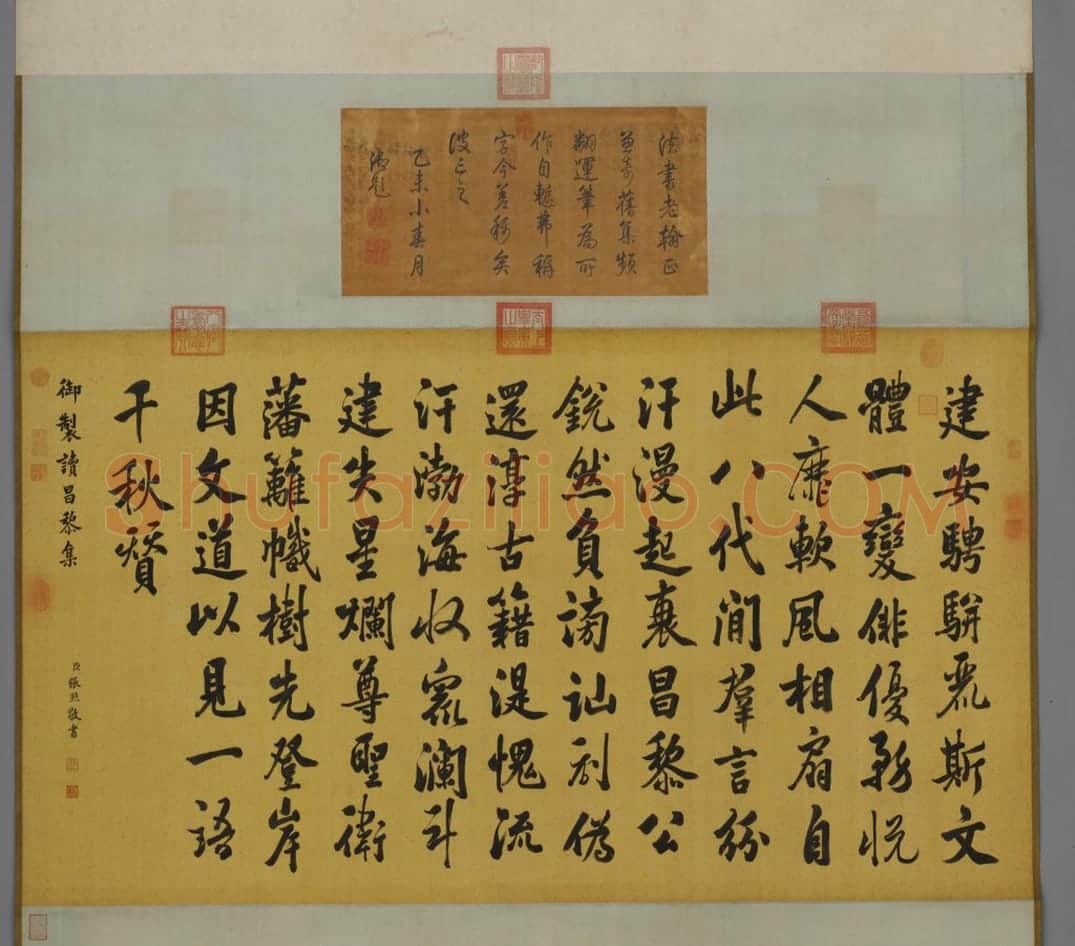 法書老翰
舊集頻
翻運筆為
作自 稱
字今 矣
乙未小春月
御題
建安騁駢麗斯文
體一變俳優務悅
人靡軟風相扇自
此八代間羣言紛
汗漫起衰昌黎公
銳然負謗訕剗偽
還淳古籍湜愧流
汗渤海收衆瀾斗
建失星爛尊聖衛
藩籬幟樹先登岸
因文道以見一語
千秋贊
御製讀昌黎集
臣張照敬書
Shufaziliao.COM